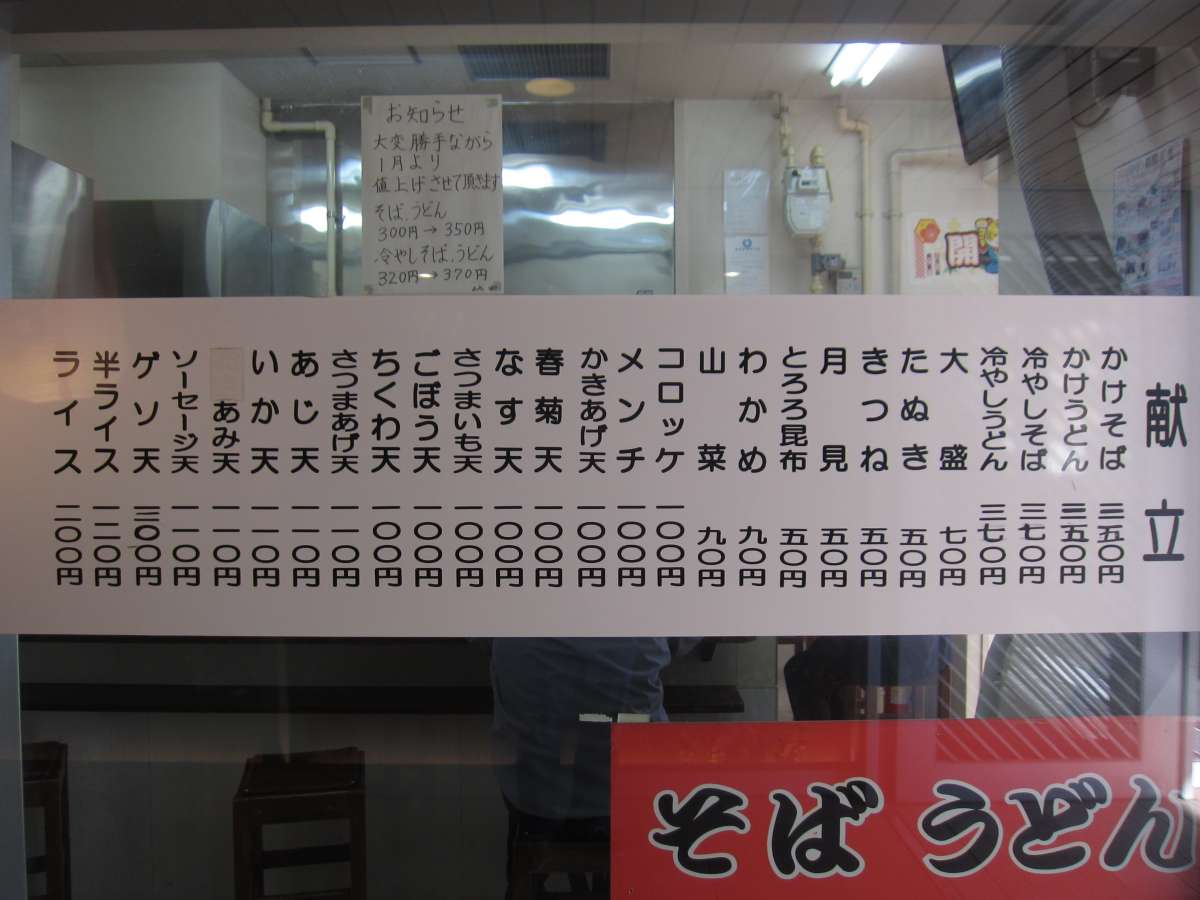 お知らせ
大変勝手ながら
1月より
値上げさせて頂きます
そば、うどん
300円→350円
冷やしそば、うどん
320円→370円
開
献立
かけそば 三五〇円
かけうどん 三五〇円
冷やしそば 三七〇円
冷やしうどん 三七〇円
大盛 七〇円
たぬき 五〇円
きつね 五〇円
月見 五〇円
とろろ昆布 五〇円
わかめ 九〇円
山菜 九〇円
コロッケ 一〇〇円
メンチ 一〇〇円
かきあげ天 一〇〇円
春菊天 一〇〇円
なす天 一〇〇円
さつまいも天 一〇〇円
ごぼう天 一〇〇円
ちくわ天 一〇〇円
さつまあげ天 一一〇円
あじ天 一一〇円
いか天 一一〇円
あみ天 一一〇円
ソーセージ天 一一〇円
ゲソ天 三〇〇円
半ライス 一二〇円
ライス 二〇〇円
そば うどん